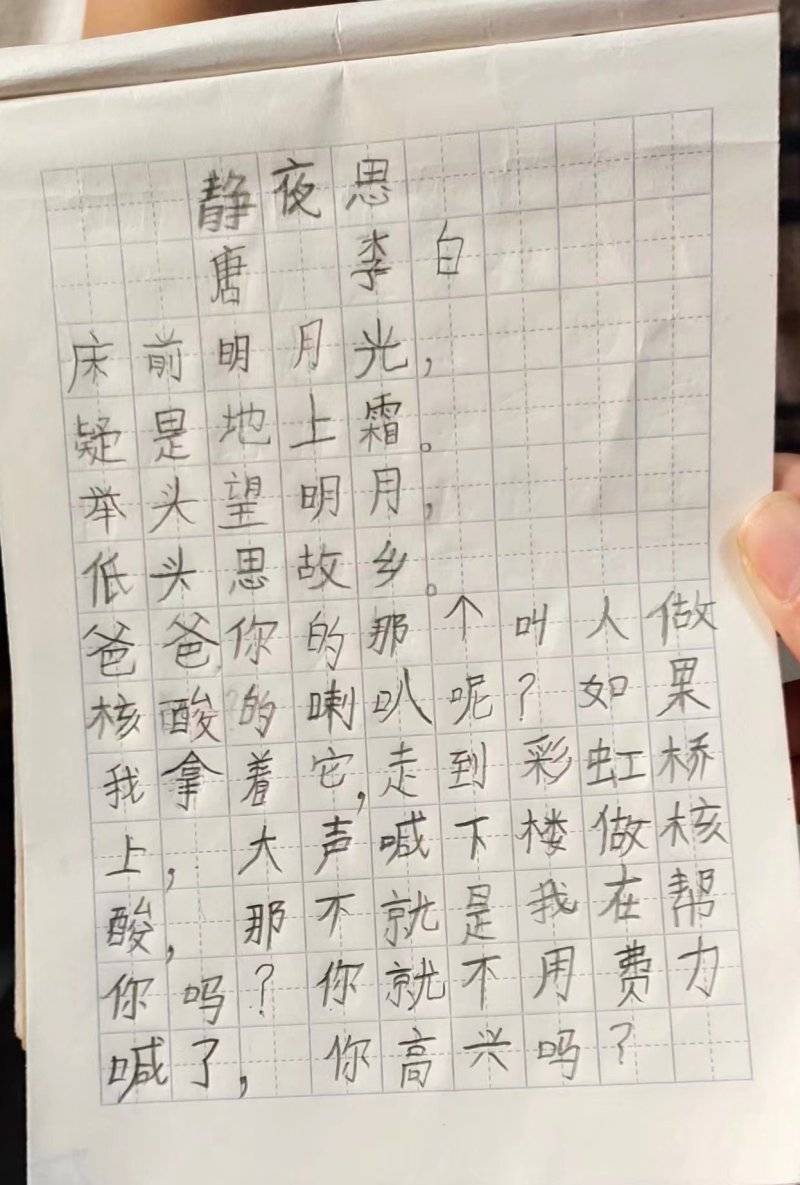 静夜思
唐 李白
床前明月光，
疑是地上霜。
举头望明月，
低头思故乡。
爸爸你的那个叫人做
核酸的喇叭呢？如果
我拿着它，走到彩虹桥
上，大声喊下楼做核
酸，那不就是我在帮
你吗？你就不用费力
喊了，你高兴吗？